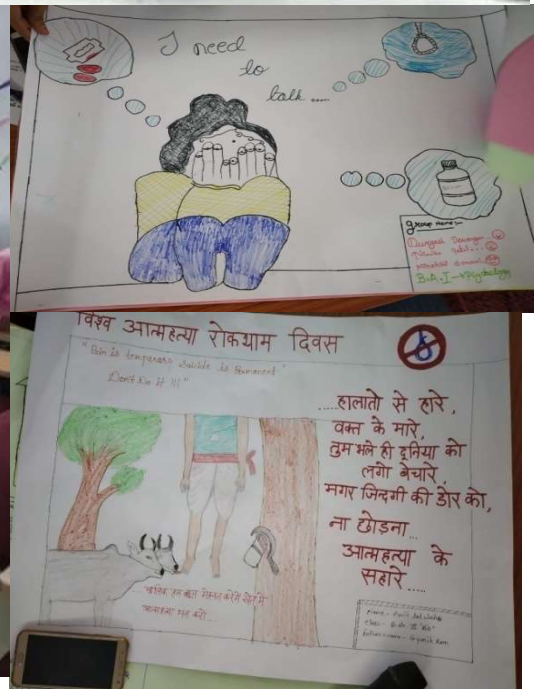 I need
to
talk ....
Group Name:-
B.A. I → Psychology
विश्व आत्महत्या रोकथाम दिवस
"Pain is temporary suicide is permanent"
Don't Do it !!!"
....हालातो से हारे,
वक्त के मारे,
तुम भले ही दुनिया को
लगो बेचारे,
मगर जिन्दगी की डोर को,
ना छोड़ना...
आत्महत्या के
सहारे.....
आत्महत्या मत करो....
Name -
Class - B.A.